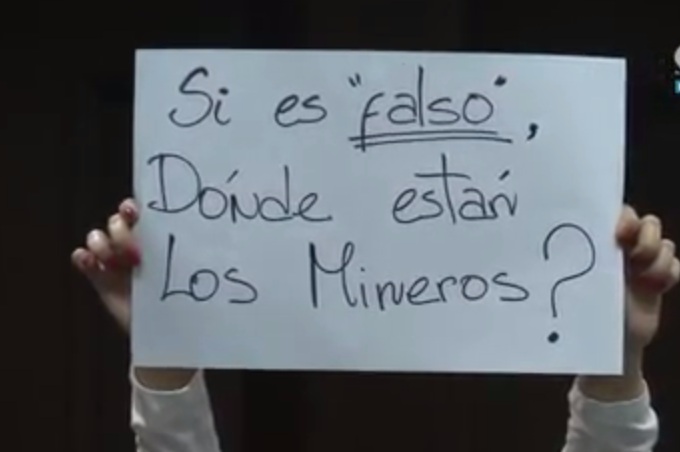 Si es "falso",
Dónde están
Los Mineros?